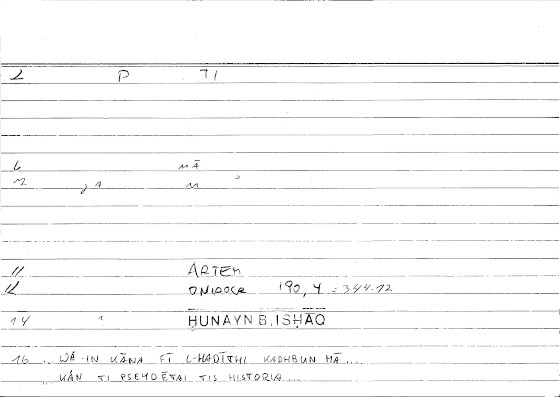 2 P TI
6 MĀ
11 ARTEM
12 ONIROCR 190, 4 = 344.12
14 ḤUNAYN B. ISḤĀQ
16 .. WA-IN KĀNA FĪ L-ḤADĪTHI KADHBUN MĀ ...
KĀN TI PSEYDĒTAI TIS HISTORIA ...